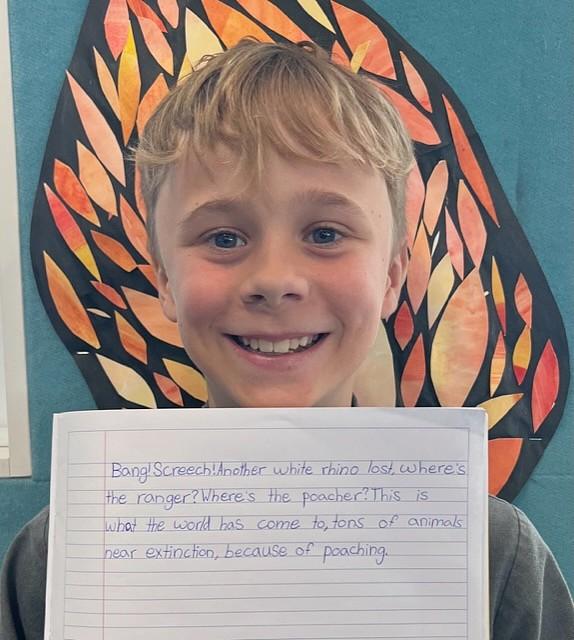 Bang!Screech!Another white rhino lost, where's
the ranger?Where's the poacher?This is
what the world has come to, tons of animals
near extinction, because of poaching.